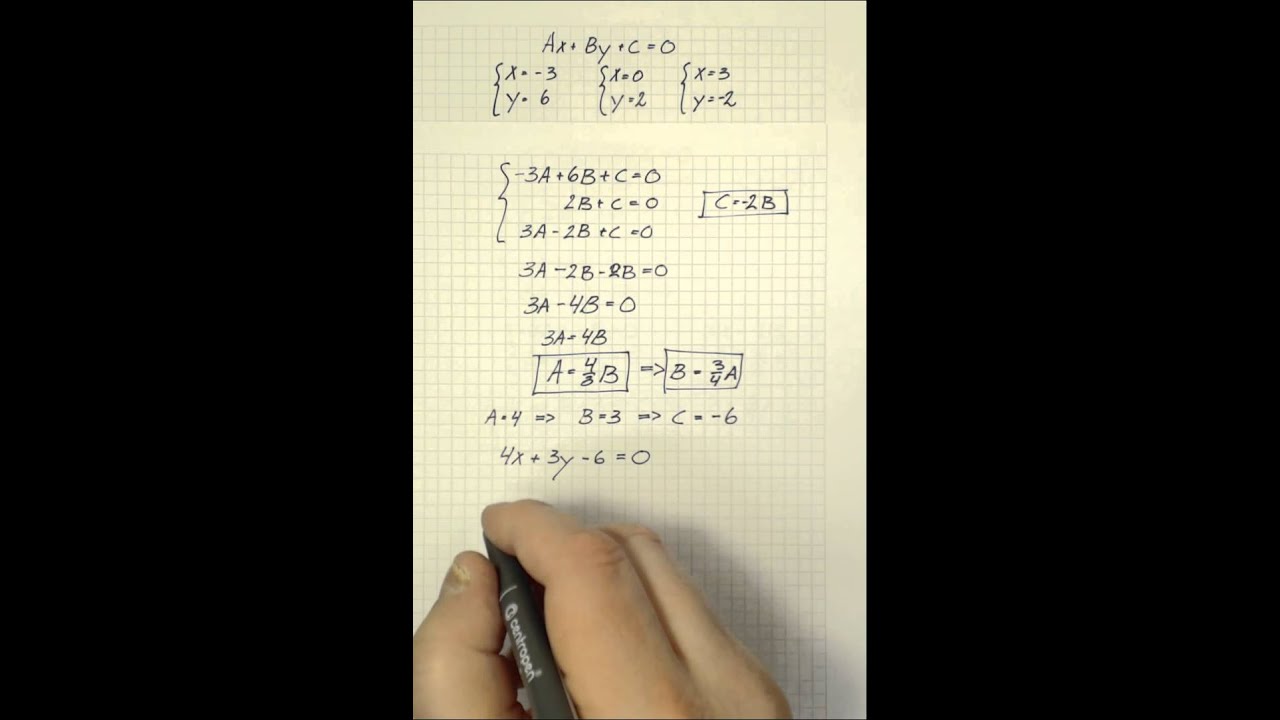 Ax + By + C = 0
{ x = -3 { x = 0 { x = 3
{ y = 6 { y = 2 { y = -2
{ -3A + 6B + C = 0
2B + C = 0 C = -2B
3A - 2B + C = 0
3A - 2B - 2B = 0
3A - 4B = 0
3A = 4B
A = 4/3 B => B = 3/4 A
A = 4 => B = 3 => C = -6
4x + 3y - 6 = 0
centropen